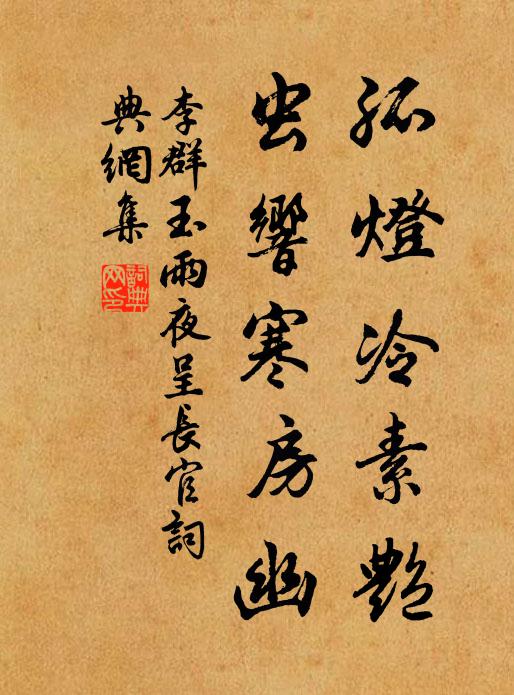 孤燈冷素艷
虫響寒房幽
李群玉雨夜呈長官詞
典網集
詞典網印